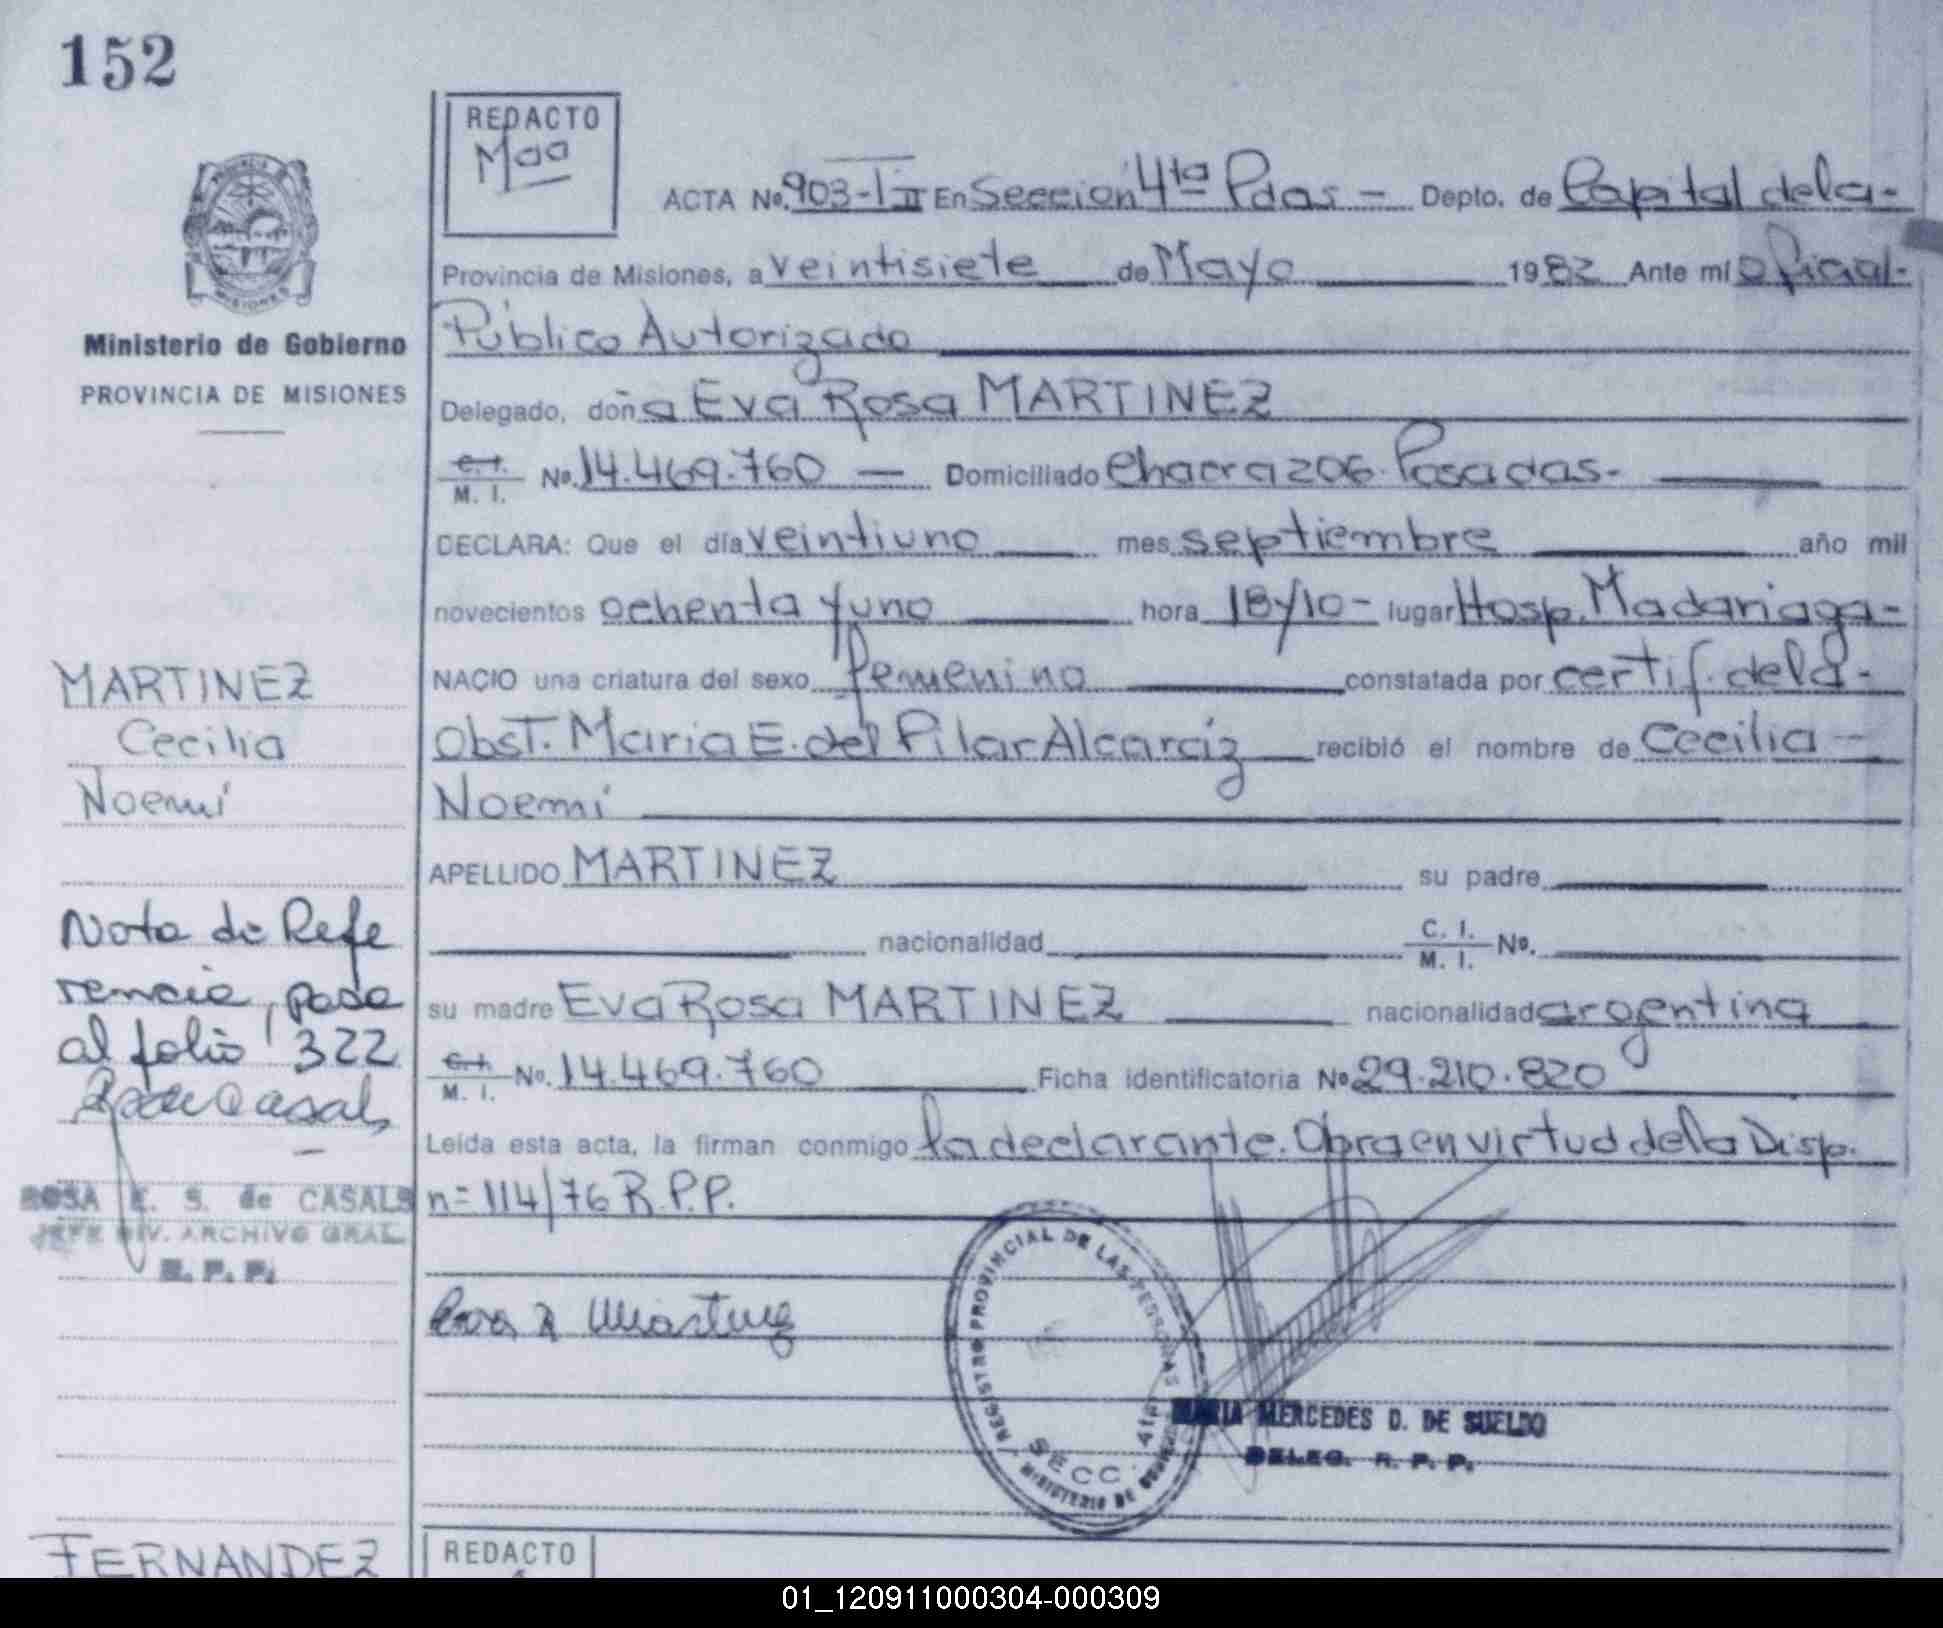 152
REDACTO
Maa
ACTA No. 903-T II En Sección 4ta Pdas - Depto. de Capital dela-
Provincia de Misiones, a veintisiete de Mayo 1982 Ante mí oficial-
Público Autorizado
Ministerio de Gobierno
PROVINCIA DE MISIONES
Delegado, doña Eva Rosa MARTINEZ
C. I. M. I. No. 14.469.760 — Domiciliado Chacra 206. Posadas.-
DECLARA: Que el día veintiuno mes septiembre año mil
novecientos ochenta y uno hora 18y10- lugar Hosp. Madariaga-
NACIO una criatura del sexo femenino constatada por certif. dela-
Obst. Maria E. del Pilar Alcaraz recibió el nombre de Cecilia -
Noemí
MARTINEZ
Cecilia
Noemí
APELLIDO MARTINEZ su padre
nacionalidad C. I. M. I. No.
su madre Eva Rosa MARTINEZ nacionalidad argentina
C. I. M. I. No. 14.469.760 Ficha identificatoria No 29.210.820
Leída esta acta, la firman conmigo la declarante. Obra en virtud dela Disp.
n= 114/76 R.P.P.
Nota de Refe
rencia, pasa
al folio 322
ROSA E. S. de CASALS
JEFE DIV. ARCHIVO GRAL.
R. P. P.
Eva R Martinez
REGISTRO PROVINCIAL DE LAS PERSONAS
SECC. 4ta
MINISTERIO DE GOBIERNO
MARIA MERCEDES D. DE SUELDO
DELEG. R. P. P.
FERNANDEZ
REDACTO
01_120911000304-000309